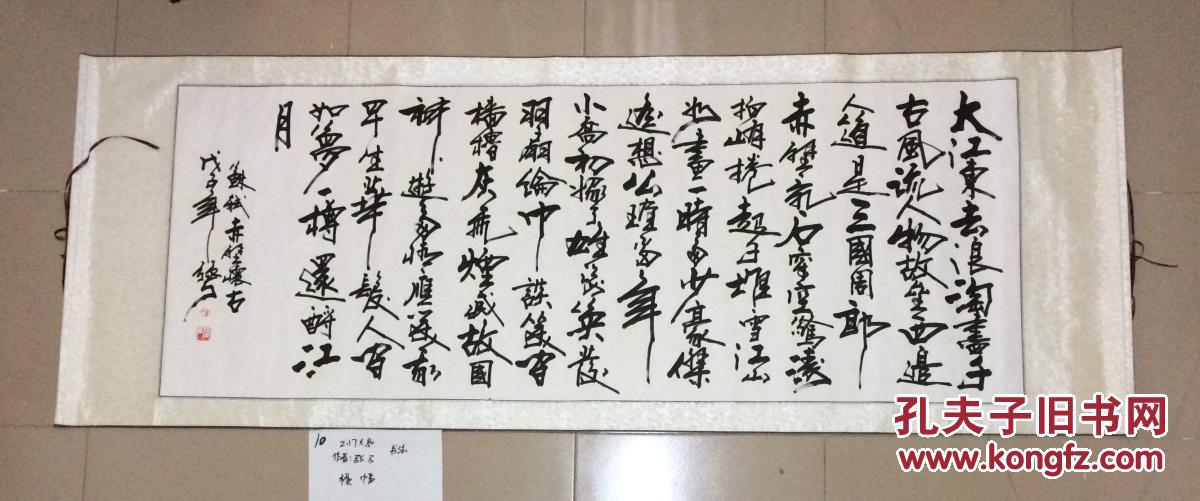 大江東去浪淘盡千
古風流人物故壘西邊
人道是三國周郎
赤壁亂石穿空驚濤
拍岸捲起千堆雪江山
如畫一時多少豪傑
遙想公瑾當年
小喬初嫁了雄姿英發
羽扇綸巾談笑間
檣櫓灰飛煙滅故國
神遊多情應笑我
早生華髮人間
如夢一樽還酹江
月
蘇軾赤壁懷古
戊子年
10
2.17×80
书法
作者:
横幅
孔夫子旧书网
www.kongfz.com